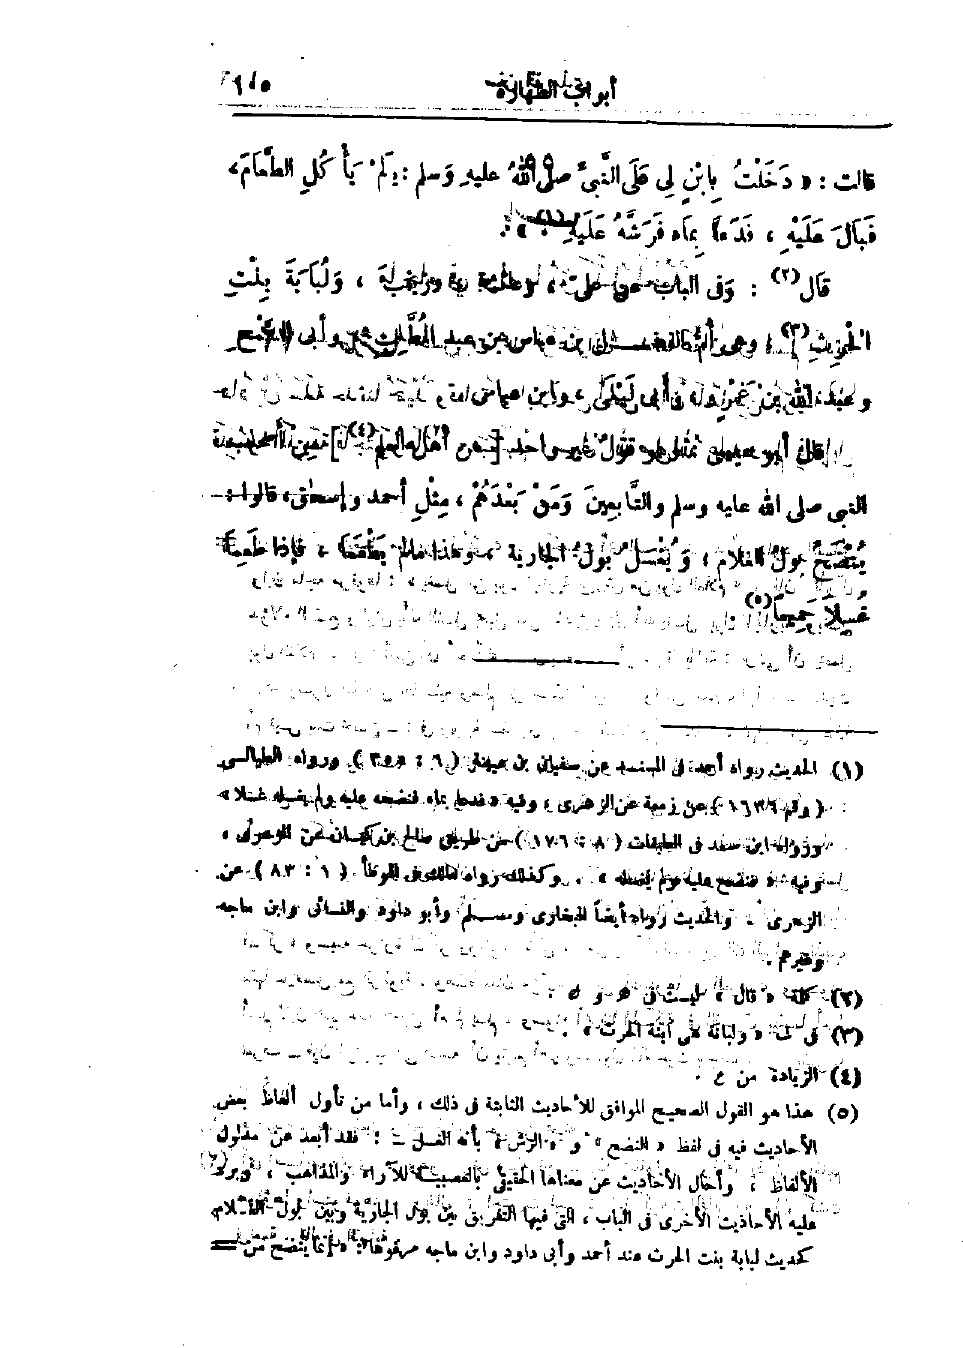 أبواب الطهارة
قالت : « دَخَلْتُ بِابْنٍ لِى عَلَى النَّبىِّ صلى اللهُ عليهِ وَسلم : لَمْ يَأْ كُلِ الطَّعَامَ،
فَبَالَ عَلَيْهِ ، فَدَعَا بِمَاء فَرَشَّهُ عَلَيْهِ (١) » .
قَالَ(٢) : وَفى الباب عن على ، وعائشة ، وزينب ، وَلُبَابَةَ بِنْتِ
الْحٰرِثِ(٣) ، وهى أم الفضل بن عباس بن عبد المُطَّلِبِ ، وأبى السَّمْحِ
وعبد الله بن عَمْرٍو ، وأبى لَيْلَى ، وابن عباس
قال أبو عيسى : وهو قَوْلُ غير واحد [ من أهل العلم (٤) ] من أصحاب
النبى صلى الله عليه وسلم والتَّابِعِينَ وَمَنْ بَعْدَهُمْ ، مِثْلِ أحمد وإسحٰق، قالوا :
يُنْضَحُ بَولُ الغلام ، وَيُغْسَلُ بَولُ الجارية ، وهذا مالم يَطْعَمَا ، فإذا طَعِمَا
غُسِلاَ جَمِيعًا(٥) .
(١) الحديث رواه أحمد فى المسند عن سفيان بن عيينة (٦ : ٣٥٥) ورواه الطيالسى
(رقم ١٦٣٦) عن زمعة عن الزهرى ، وفيه « فدعا بماء فنضحه عليه ولم يغسله غسلا »
ورواه ابن سعد فى الطبقات (٨ : ١٧٦) من طريق صالح بن كيسان عن الزهرى ،
وفيه : « فنضح عليه ولم يغسله » . وكذلك رواه مالك فى الموطأ (١ : ٨٣) عن
الزهرى . والحديث رواه أيضاً البخارى ومسلم وأبو داود والنسائى وابن ماجه
وغيرهم .
(٢) كلمة « قال » ليست فى ه و ك .
(٣) فى ك « ولبابة هى ابنة الحرث » .
(٤) الزيادة من ع .
(٥) هذا هو القول الصحيح الموافق للأحاديث الثابتة فى ذلك ، وأما من تأول ألفاظ بعض
الأحاديث فيه فى لفظ « النضح » و « الرش » بأنه الغسل ــ : فقد أبعد عن مدلول
الألفاظ ، وأحال الأحاديث عن معناها الحقيقى بالعصبية للآراء والمذاهب ، ويرد
عليه الأحاديث الأخرى فى الباب ، التى فيها التفريق بين بول الجارية وبين بول الغلام
كحديث لبابة بنت الحرث عند أحمد وأبى داود وابن ماجه مرفوعا : « إنما ينضح من =